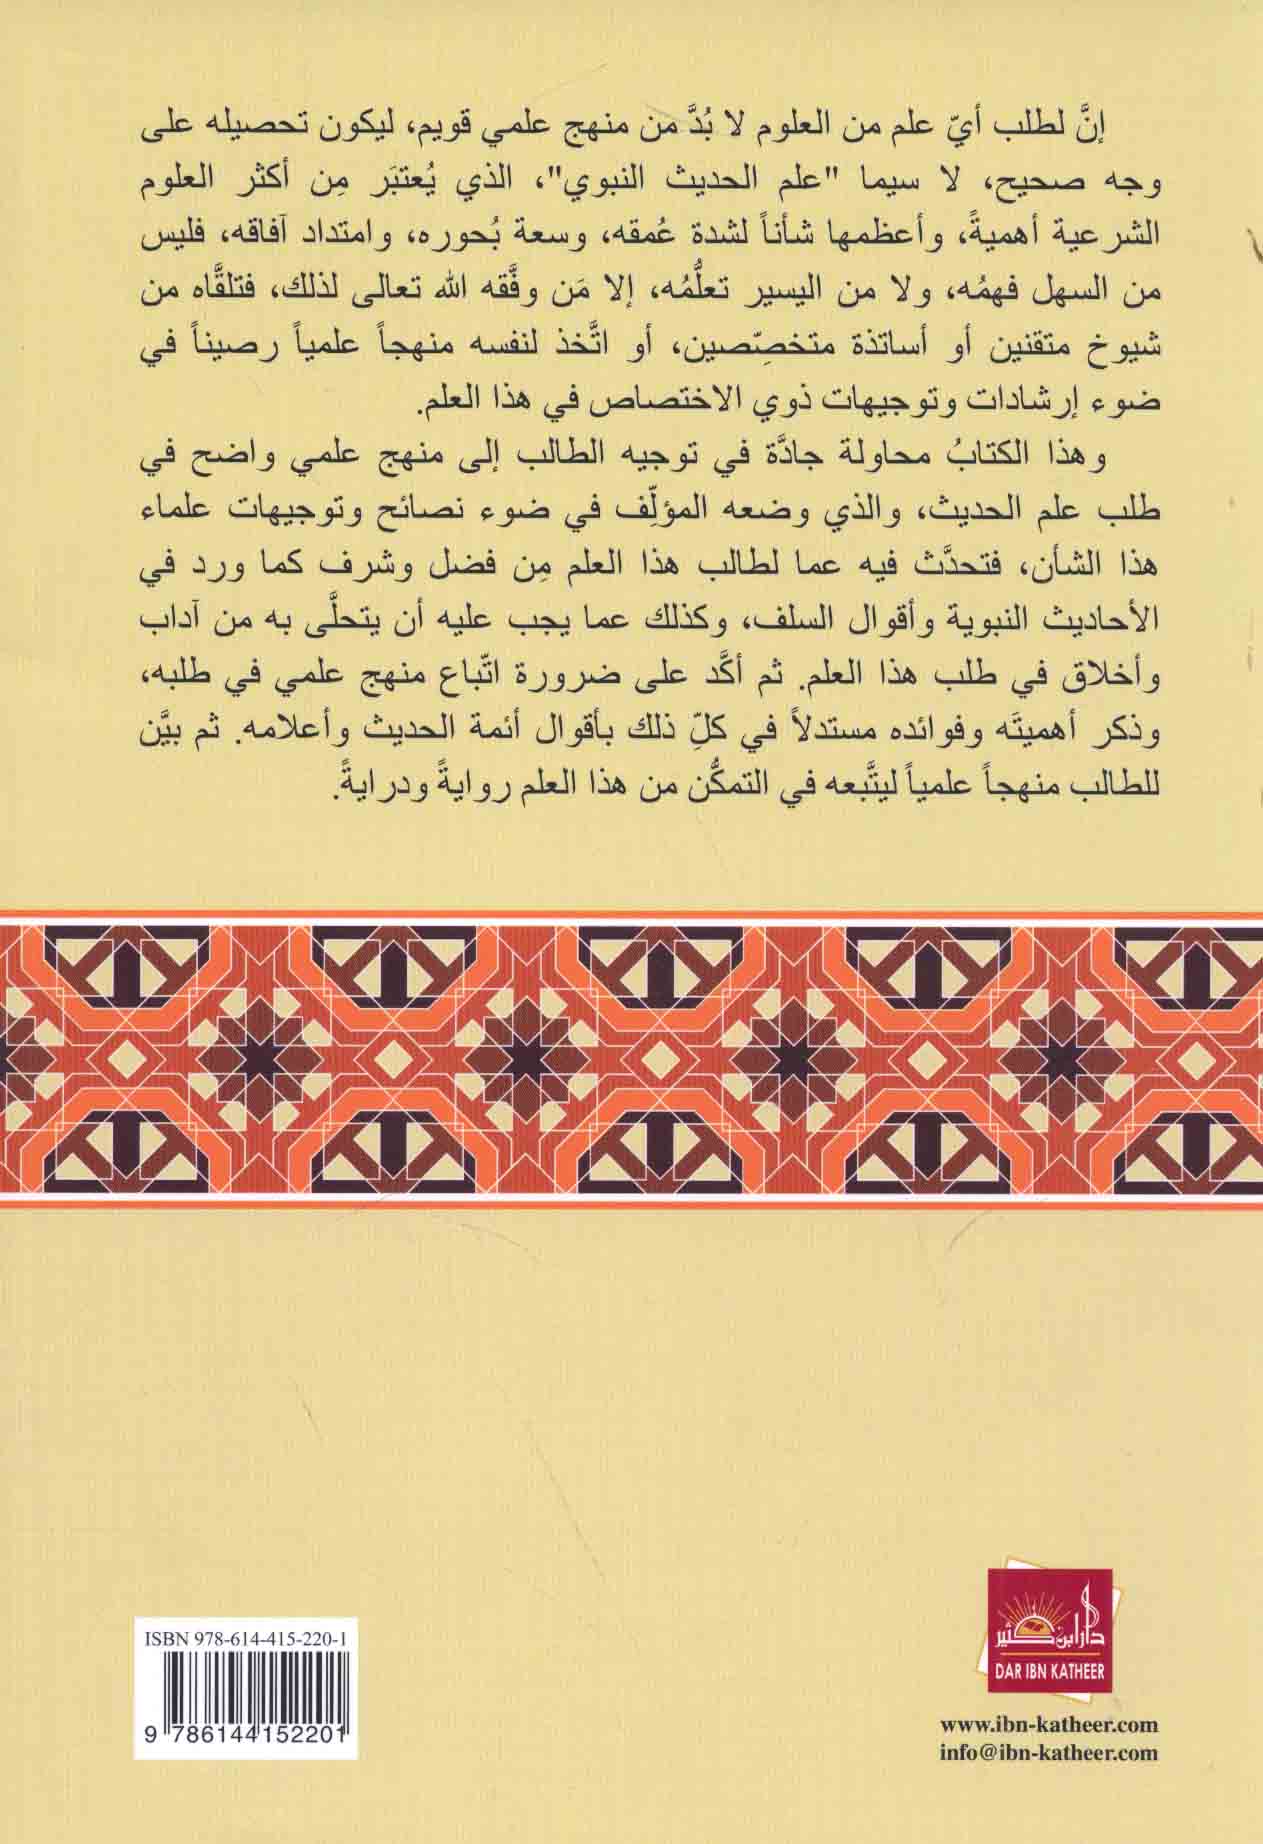 إنَّ لطلب أيّ علم من العلوم لا بُدَّ من منهج علمي قويم، ليكون تحصيله على
وجه صحيح، لا سيما "علم الحديث النبوي"، الذي يُعتبَر مِن أكثر العلوم
الشرعية أهميةً، وأعظمها شأناً لشدة عُمقه، وسعة بُحوره، وامتداد آفاقه، فليس
من السهل فهمُه، ولا من اليسير تعلُّمُه، إلا مَن وفَّقه الله تعالى لذلك، فتلقَّاه من
شيوخ متقنين أو أساتذة متخصِّصين، أو اتَّخذ لنفسه منهجاً علمياً رصيناً في
ضوء إرشادات وتوجيهات ذوي الاختصاص في هذا العلم.
وهذا الكتابُ محاولة جادَّة في توجيه الطالب إلى منهج علمي واضح في
طلب علم الحديث، والذي وضعه المؤلِّف في ضوء نصائح وتوجيهات علماء
هذا الشأن، فتحدَّث فيه عما لطالب هذا العلم مِن فضل وشرف كما ورد في
الأحاديث النبوية وأقوال السلف، وكذلك عما يجب عليه أن يتحلَّى به من آداب
وأخلاق في طلب هذا العلم. ثم أكَّد على ضرورة اتّباع منهج علمي في طلبه،
وذكر أهميتَه وفوائده مستدلاً في كلِّ ذلك بأقوال أئمة الحديث وأعلامه. ثم بيَّن
للطالب منهجاً علمياً ليتَّبعه في التمكُّن من هذا العلم روايةً ودرايةً.
دار ابن كثير
DAR IBN KATHEER
www.ibn-katheer.com
info@ibn-katheer.com
ISBN 978-614-415-220-1
9 786144 152201